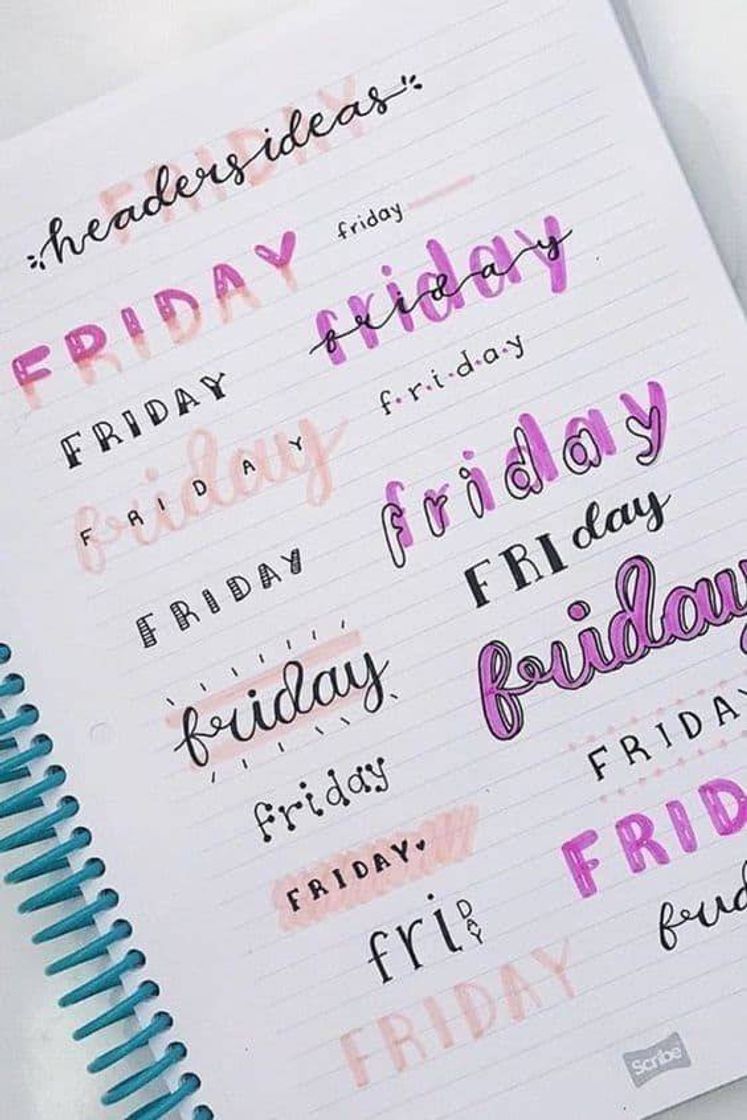 FRIDAY
headers ideas
friday
FRIDAY
friday
friday
FRIDAY
f.r.i.d.a.y
friday
F R I D A Y
friday
FRIDAY
FRIday
friday
friday
FRIDAY
friday
FRIDAY♥
FRID
friDAY
frid
FRIDAY
Scribe